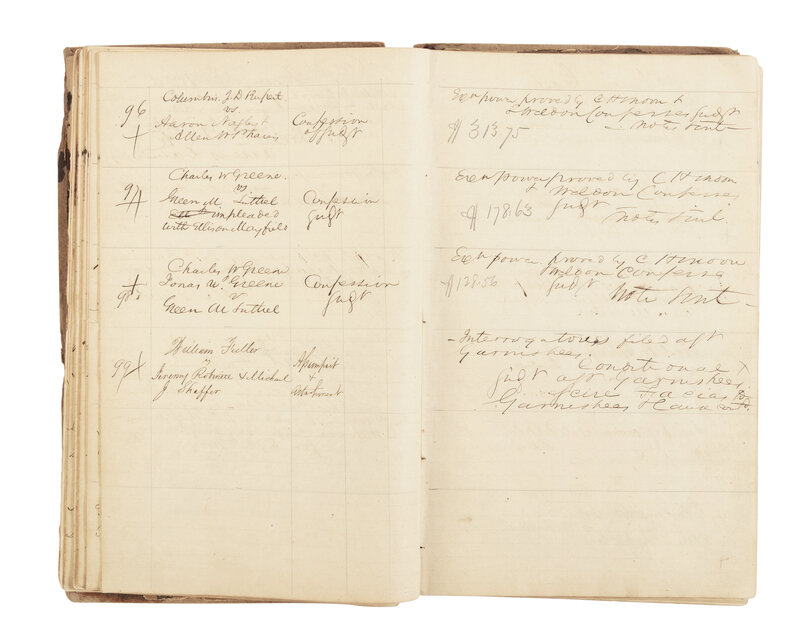 96
Columbus J D Rupert
vs
Aaron Naglest
Allen W
Confession
of Judgt
Exn power proved by C H Moon &
Weldon Confesses Judgt
$ 313 75
Note Sent
97
Charles W Greene
vs
Green M. Luthel
impleaded
with Ellison Mayfield
Confession
Judgt
Exn power proved by C H Moon
& Weldon Confesses
$ 178.63 Judgt
Note Sent
98
Charles W Greene
Jonas W. Greene
v
Green M Luthel
Confession
Judgt
Exn power proved by C H Moon
Weldon Confess
$128.56 Judgt
Note Sent
99
William Fuller
vs
Jeremy & Michael
J Shaffer
Assumpsit
&
Attachment
Interrogatories filed aft
Garnishees.
Conditional
Judt aft Garnishees
Scire Facias
Garnishees & Cause cont